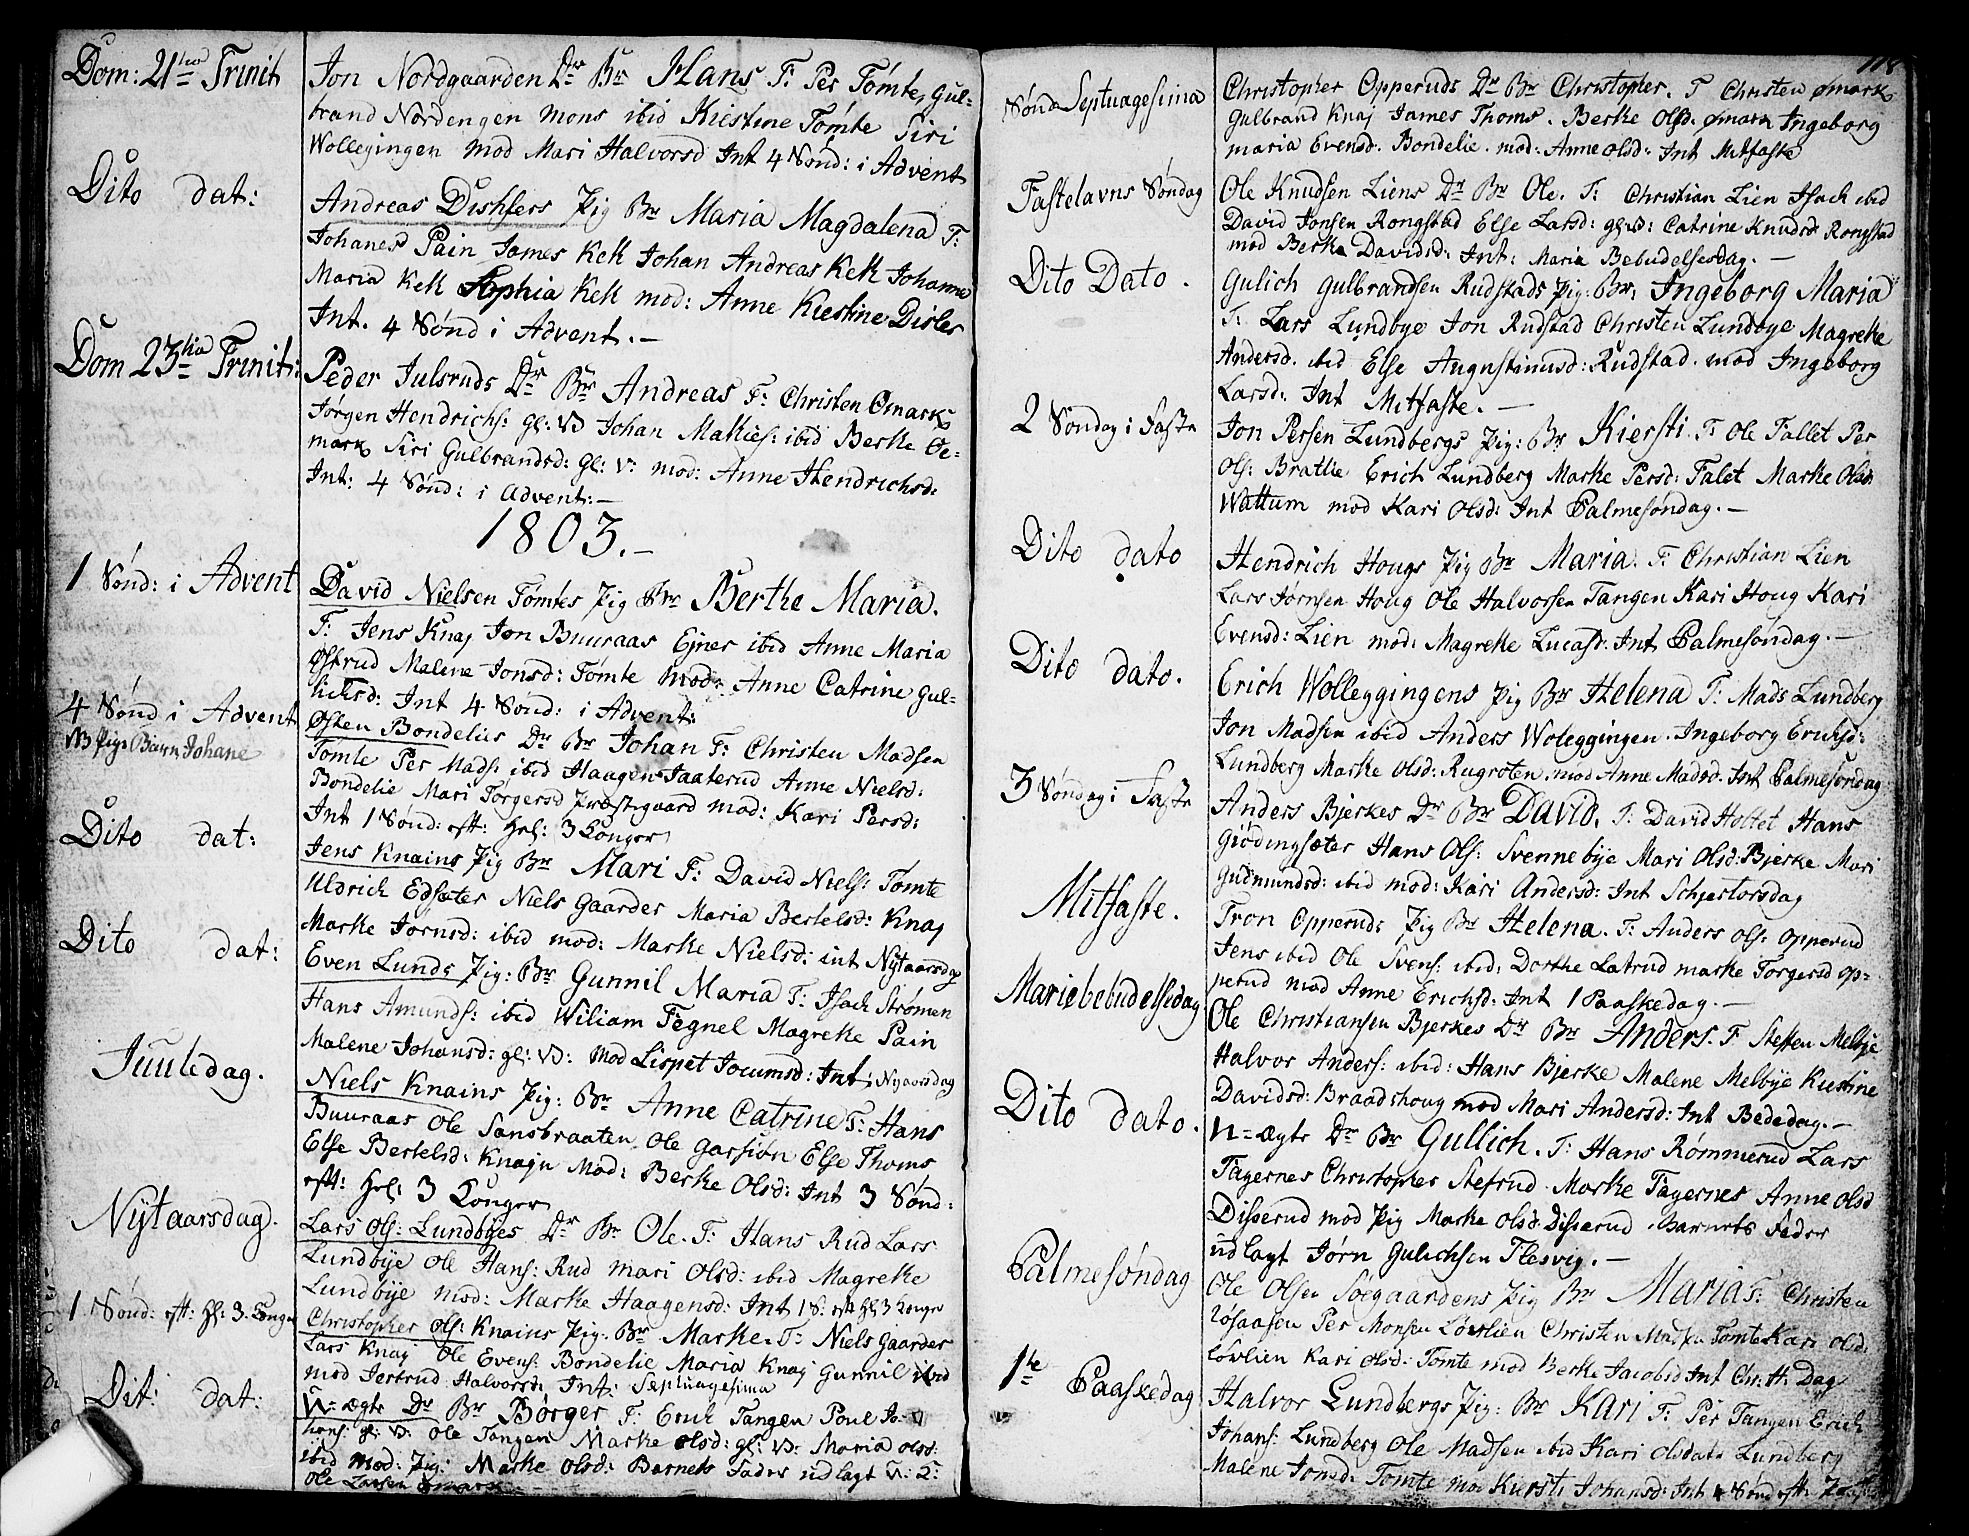 Dom: 21 Trinit
Jon Nordgaarden Dr Br Hans T: Per Tømte, Gul-
brand Nordengen Mons ibid Kiestine Tømte Siri
Wollegingen mod Mari Halvorsd Int 4 Sønd: i Advent
Dito dat:
Andreas Dishsers Pig Br Maria Magdalena T:
Johanes Pain James Kek Johan Andreas Kek Johanne
Maria Kek Sophia Kek mod: Anne Kiestine Disler
Int. 4 Sønd i Advent. —
Dom 23 Trinit:
Peder Julsruds Dr Br Andreas T: Christen Omark
Jørgen Hendrichs: gl: V Johan Mathies: ibid Berthe Oe-
mark Siri Gulbrandsd: gl: V: mod: Anne Hendrichsd:
Int: 4 Sønd: i Advent: —
1803. —
1 Sønd: i Advent
David Nielsen Tømtes Pig Br Berthe Maria.
T: Jens Knaj Jon Buuraas Ejner ibid Anne Maria
Østrud Malene Jonsd: Tømte mod: Anne Catrine Gul-
lichsd: Int 4 Sønd: i Advent:
4 Sønd i Advent
NB Pige Barn Johane
Østen Bondelies Dr Br Johan T: Christen Madsen
Tømte Per Mads: ibid Haagen Taaterud Anne Nielsd:
Bondelie Mari Torgersd Præstgaard mod: Kari Persd:
Int 1 Sønd: eft: Hel: 3 Konger
Dito dat:
Jens Knains Pig Br Mari T: David Niels: Tømte
Uldrich Edsæter Niels Gaarder Maria Bertelsd: Knaj
Marthe Jornsd: ibid mod: Marthe Nielsd: int Nytaarsdag
Dito dat:
Even Lunds Pig: Br Gunnil Maria T: Isach Strømen
Hans Amunds: ibid Wiliam Tegnel Magrethe Pain
Malene Johansd: gl: V: Mod Lispet Jocumsd: Int: Nyaarsdag
Juuledag.
Niels Knains Pig: Br Anne Catrine T: Hans
Buuraas Ole Sansbraaten Ole Garsiøn Else Thoms
Else Bertelsd: Knajn Mod: Berthe Olsd: Int 3 Sønd:
eft: Hel: 3 Konger
Nytaarsdag.
Lars Ols: Lundbyes Dr Br Ole. T: Hans Rud Lars
Lundbye Ole Hans: Rud Mari Olsd: ibid Magrethe
Lundbye mod: Marthe Haagensd: Int 1 S: eft Hl: 3 Konger
1 Sønd: eft: Hl: 3. Konger
Christopher Ols: Knains Pig: Br Marthe. T: Niels Gaarder
Lars Knaj Ole Evens: Bondelie Maria Knaj Gunnil ibid
mod Jertrud Halvorsd: Int: Septuagesima
Dit: dat:
U-ægte Dr Br Børger T: Erich Tangen Poul Jo-
hans: gl: V: Ole Tangen Marthe Olsd: gl: V: Maria Olsd:
ibid Mod: Pig: Marthe Olsd: Barnets Fader udlagt U: K:
Ole Larsen
118
Sønd Septuagesima
Christopher Opperuds Dr Br Christopher. T Christen Ømark
Gulbrand Knaj James Thoms. Berthe Olsd. Ømark Ingeborg
Maria Evensd. Bondelie. mod: Anne Olsd: Int Mitfaste
Fastelavns Søndag
Ole Knudsen Liens Dr Br Ole. T: Christian Lien Isach ibid
David Jonsen Rongstad Else Larsd: gl: V: Catrine Knudsd Rongstad
mod Berthe Davidsd: Int: Maria Bebudelsesdag. —
Dito Dato.
Gulich Gulbrandsen Rudstads Pig: Br: Ingeborg Maria
T: Lars Lundbye Jon Rudstad Christen Lundbye Magrethe
Andersd. ibid Else Augustinusd: Rudstad. mod Ingeborg
Larsd: Int Mitfaste. —
2 Søndag i Faste
Jon Persen Lundbergs Pig: Br Kiersti. T: Ole Fallet Per
Ols: Bratlie Erich Lundberg Marthe Persd: Falet Marthe Olsd
Wattum mod Kari Olsd: Int Palmesøndag. —
Dito dato
Hendrich Hougs Pig Br Maria: T: Christian Lien
Lars Jørnsen Houg Ole Halvorsen Tangen Kari Houg Kari
Evensd: Lien mod: Magrethe Lucasd: Int Palmesøndag. —
Dito dato.
Erich Wolleggingens Pig Br Helena T: Mads Lundberg
Jon Madsen ibid Anders Woleggingen. Ingeborg Erichsd:
Lundberg Marthe Olsd: Rugroten. mod Anne Madsd: Int Palmesøndag
3 Søndag i Faste
Anders Bjerkes Dr Br David. T: David Holtet Hans
Giødingsæter Hans Ols: Svennebye Mari Olsd: Bjerke Mari
Gudmundsd: ibid mod: Kari Andersd: Int Schjertorsdag
Mitfaste.
Tron Opperuds Pig Br Helena. T: Anders Ols: Opperud
Jens ibid Ole Svens: ibid: Dorthe Latrud Marthe Torgersd Op-
perud mod Anne Erichsd: Int 1 Paaskedag. —
Mariebebudelsedag
Ole Christiansen Bjerkes Dr Br Anders. T Steffen Melbye
Halvor Anders: ibid: Hans Bjerke Malene Melbye Kiestine
Davidsd: Braadshoug mod Mari Andersd: Int Bededag. —
Dito dato.
U-ægte Dr Br Gullich. T: Hans Rømmerud Lars
Tagernes Christopher Stefrud Marthe Tagernes Anne Olsd
Disserud mod Pig Marthe Olsd Disserud. Barnets Fader
udlagt Jørn Gulichsen Flesvig. —
Palmesøndag
Ole Olsen Soegaardens Pig Br Maria T: Christen
Losaasen Per Monsen Løvlien Christen Madsen Tømte Kari Olsd.
Løvlien Kari Olsd: Tømte mod Berthe Jacobsd Int Chr: H: Dag
1te Paaskedag
Halvor Lundbergs Pig: Br Kari T: Per Tangen Erich
Johans: Lundberg Ole Madsen ibid Kari Olsdatr Lundberg
Malene Jonsd: Tømte mod Kiersti Johansd: Int 4 Sønd eft: